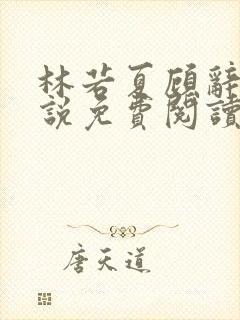 林若夏顾辭
説免費閱讀
唐天道